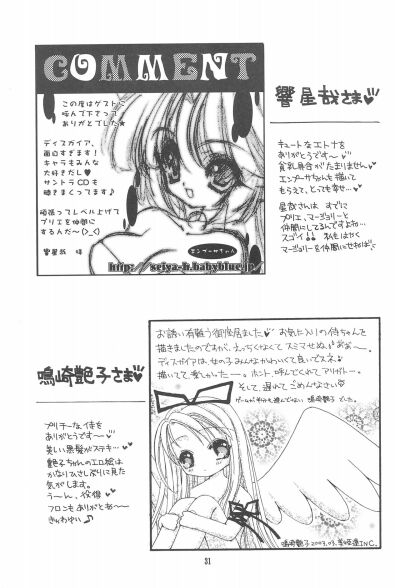 COMMENT
この度はゲストに
呼んで下さって
ありがとでした★
ディスガイア、
面白すぎます!
キャラもみんな
大好きだし♥
サントラCDも
聴きまくってます♪
頑張ってレベル上げて
プリエを仲間に
するんだ〜(>_<)
響星哉 拝
エンプーサちゃん
http://seiya-h.babyblue.jp/
響星哉さま♥
キュートなエトナを
ありがとうです〜♥
貧乳具合がたまりません♥
エンプーサちゃんも描いて
もらえて、とっても幸せ…♥
星哉さんは すでに
プリエ、マージョリーと
仲間にしてるんですよね…
スゴイ!! 私もはやく
マージョリーを仲間にせねば♥
お誘い有難う御座居ました♥ お気に入りの侍ちゃんを
描きましたのですが、えっちくなくて スミマせぬ!!
ディスガイアは、女の子みんなかわいくて良いでスネ♪
描いてて、楽しかったー。ホント、呼んでくれて アリガトー。
そして、遅れて ごめんなさい
鳴崎艶子 でした。
鳴崎艶子さま♥
プリチーな、侍を
ありがとうです〜♥
美しい黒髪がステキ…♥
艶子ちゃんのエロ絵は
かなりひさしぶりに見た
気がします。
う〜ん、役得♥
フロンもありがとね〜
きゃわゆい♪
鳴崎艶子 2003.03.
INC.
31